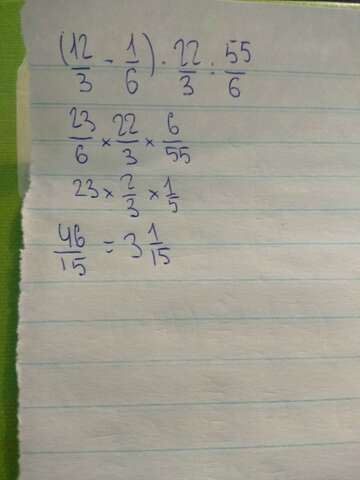 (12/3 - 1/6) · 22/3 : 55/6
23/6 × 22/3 × 6/55
23 × 2/3 × 1/5
46/15 = 3 1/15